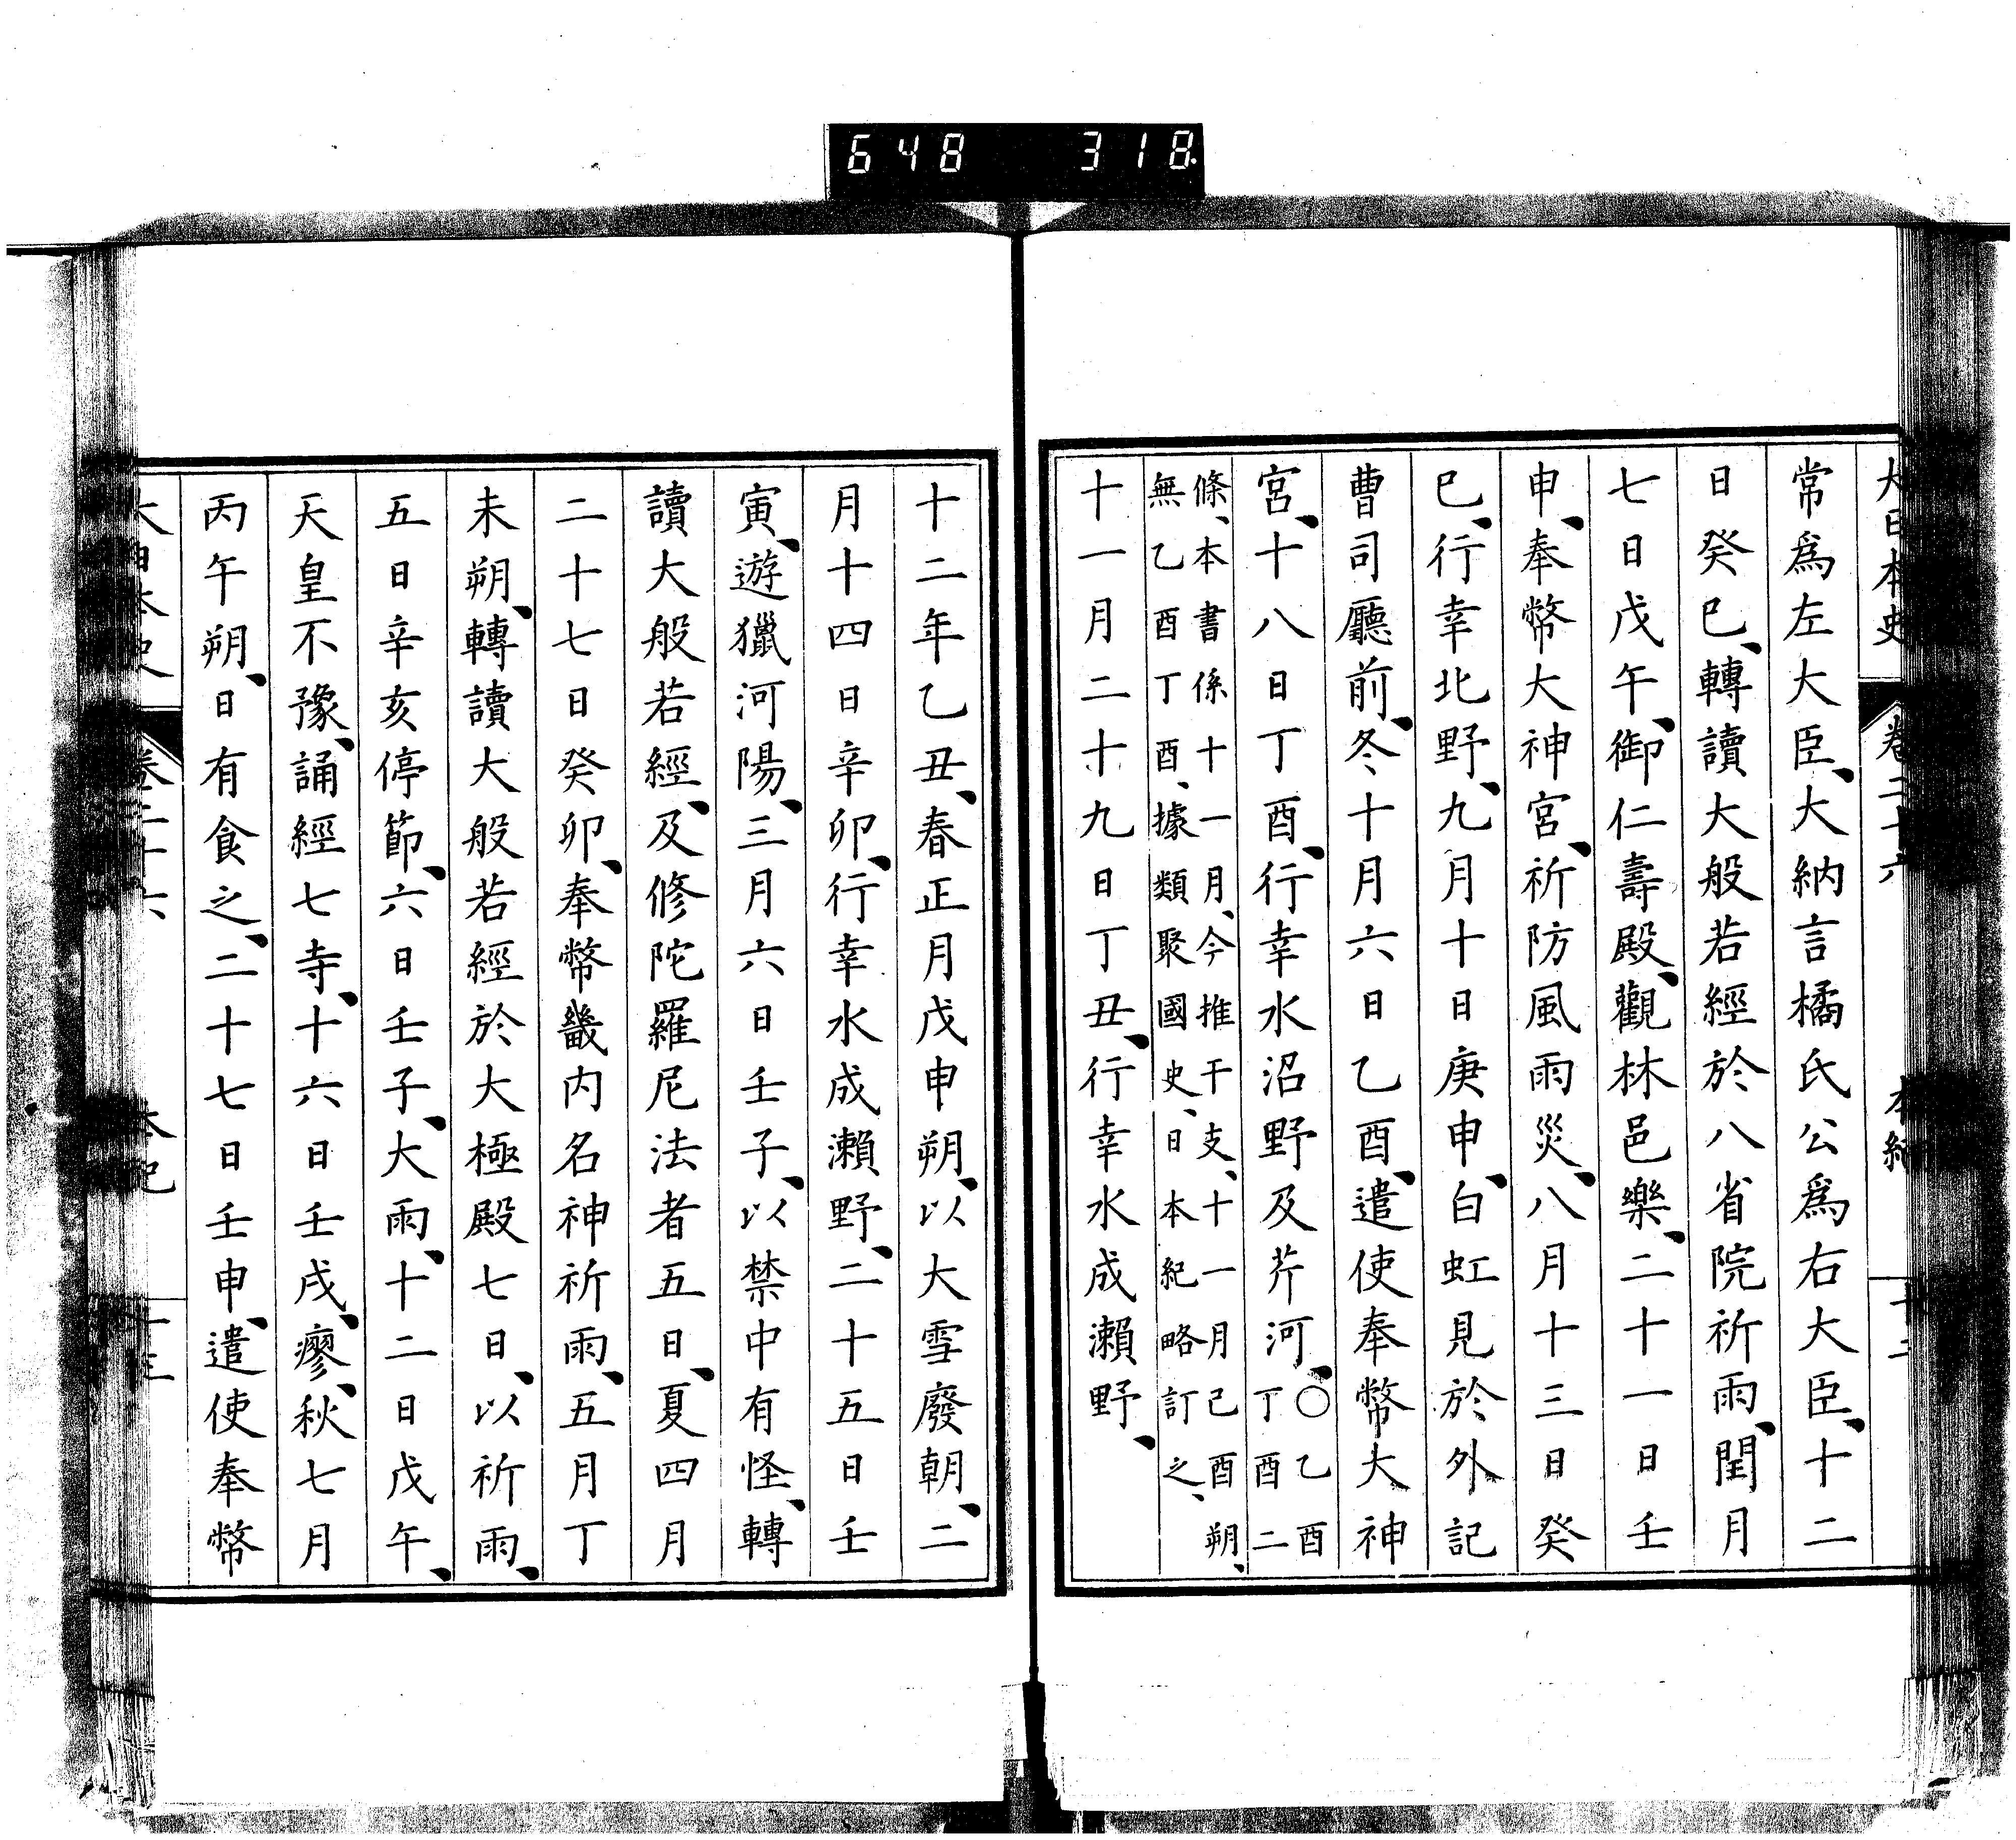 648 318
大日本史 卷二十六 本紀
常爲左大臣、大納言橘氏公爲右大臣、十二
日癸巳、轉讀大般若經於八省院祈雨、閏月
七日戊午、御仁壽殿、觀林邑樂、二十一日壬
申、奉幣大神宮、祈防風雨災、八月十三日癸
巳、行幸北野、九月十日庚申、白虹見於外記
曹司廳前、冬十月六日乙酉、遣使奉幣大神
宮、十八日丁酉、行幸水沼野及芹河、〇乙酉
丁酉二
條、本書係十一月、今推干支、十一月己酉朔、
無乙酉丁酉、據類聚國史、日本紀略訂之、
十一月二十九日丁丑、行幸水成瀨野、
十二年乙丑、春正月戊申朔、以大雪廢朝、二
月十四日辛卯、行幸水成瀨野、二十五日壬
寅、遊獵河陽、三月六日壬子、以禁中有怪、轉
讀大般若經、及修陀羅尼法者五日、夏四月
二十七日癸卯、奉幣畿内名神祈雨、五月丁
未朔、轉讀大般若經於大極殿七日、以祈雨、
五日辛亥停節、六日壬子、大雨、十二日戊午、
天皇不豫、誦經七寺、十六日壬戌、瘳、秋七月
丙午朔、日有食之、二十七日壬申、遣使奉幣
大日本史 卷二十六 本紀